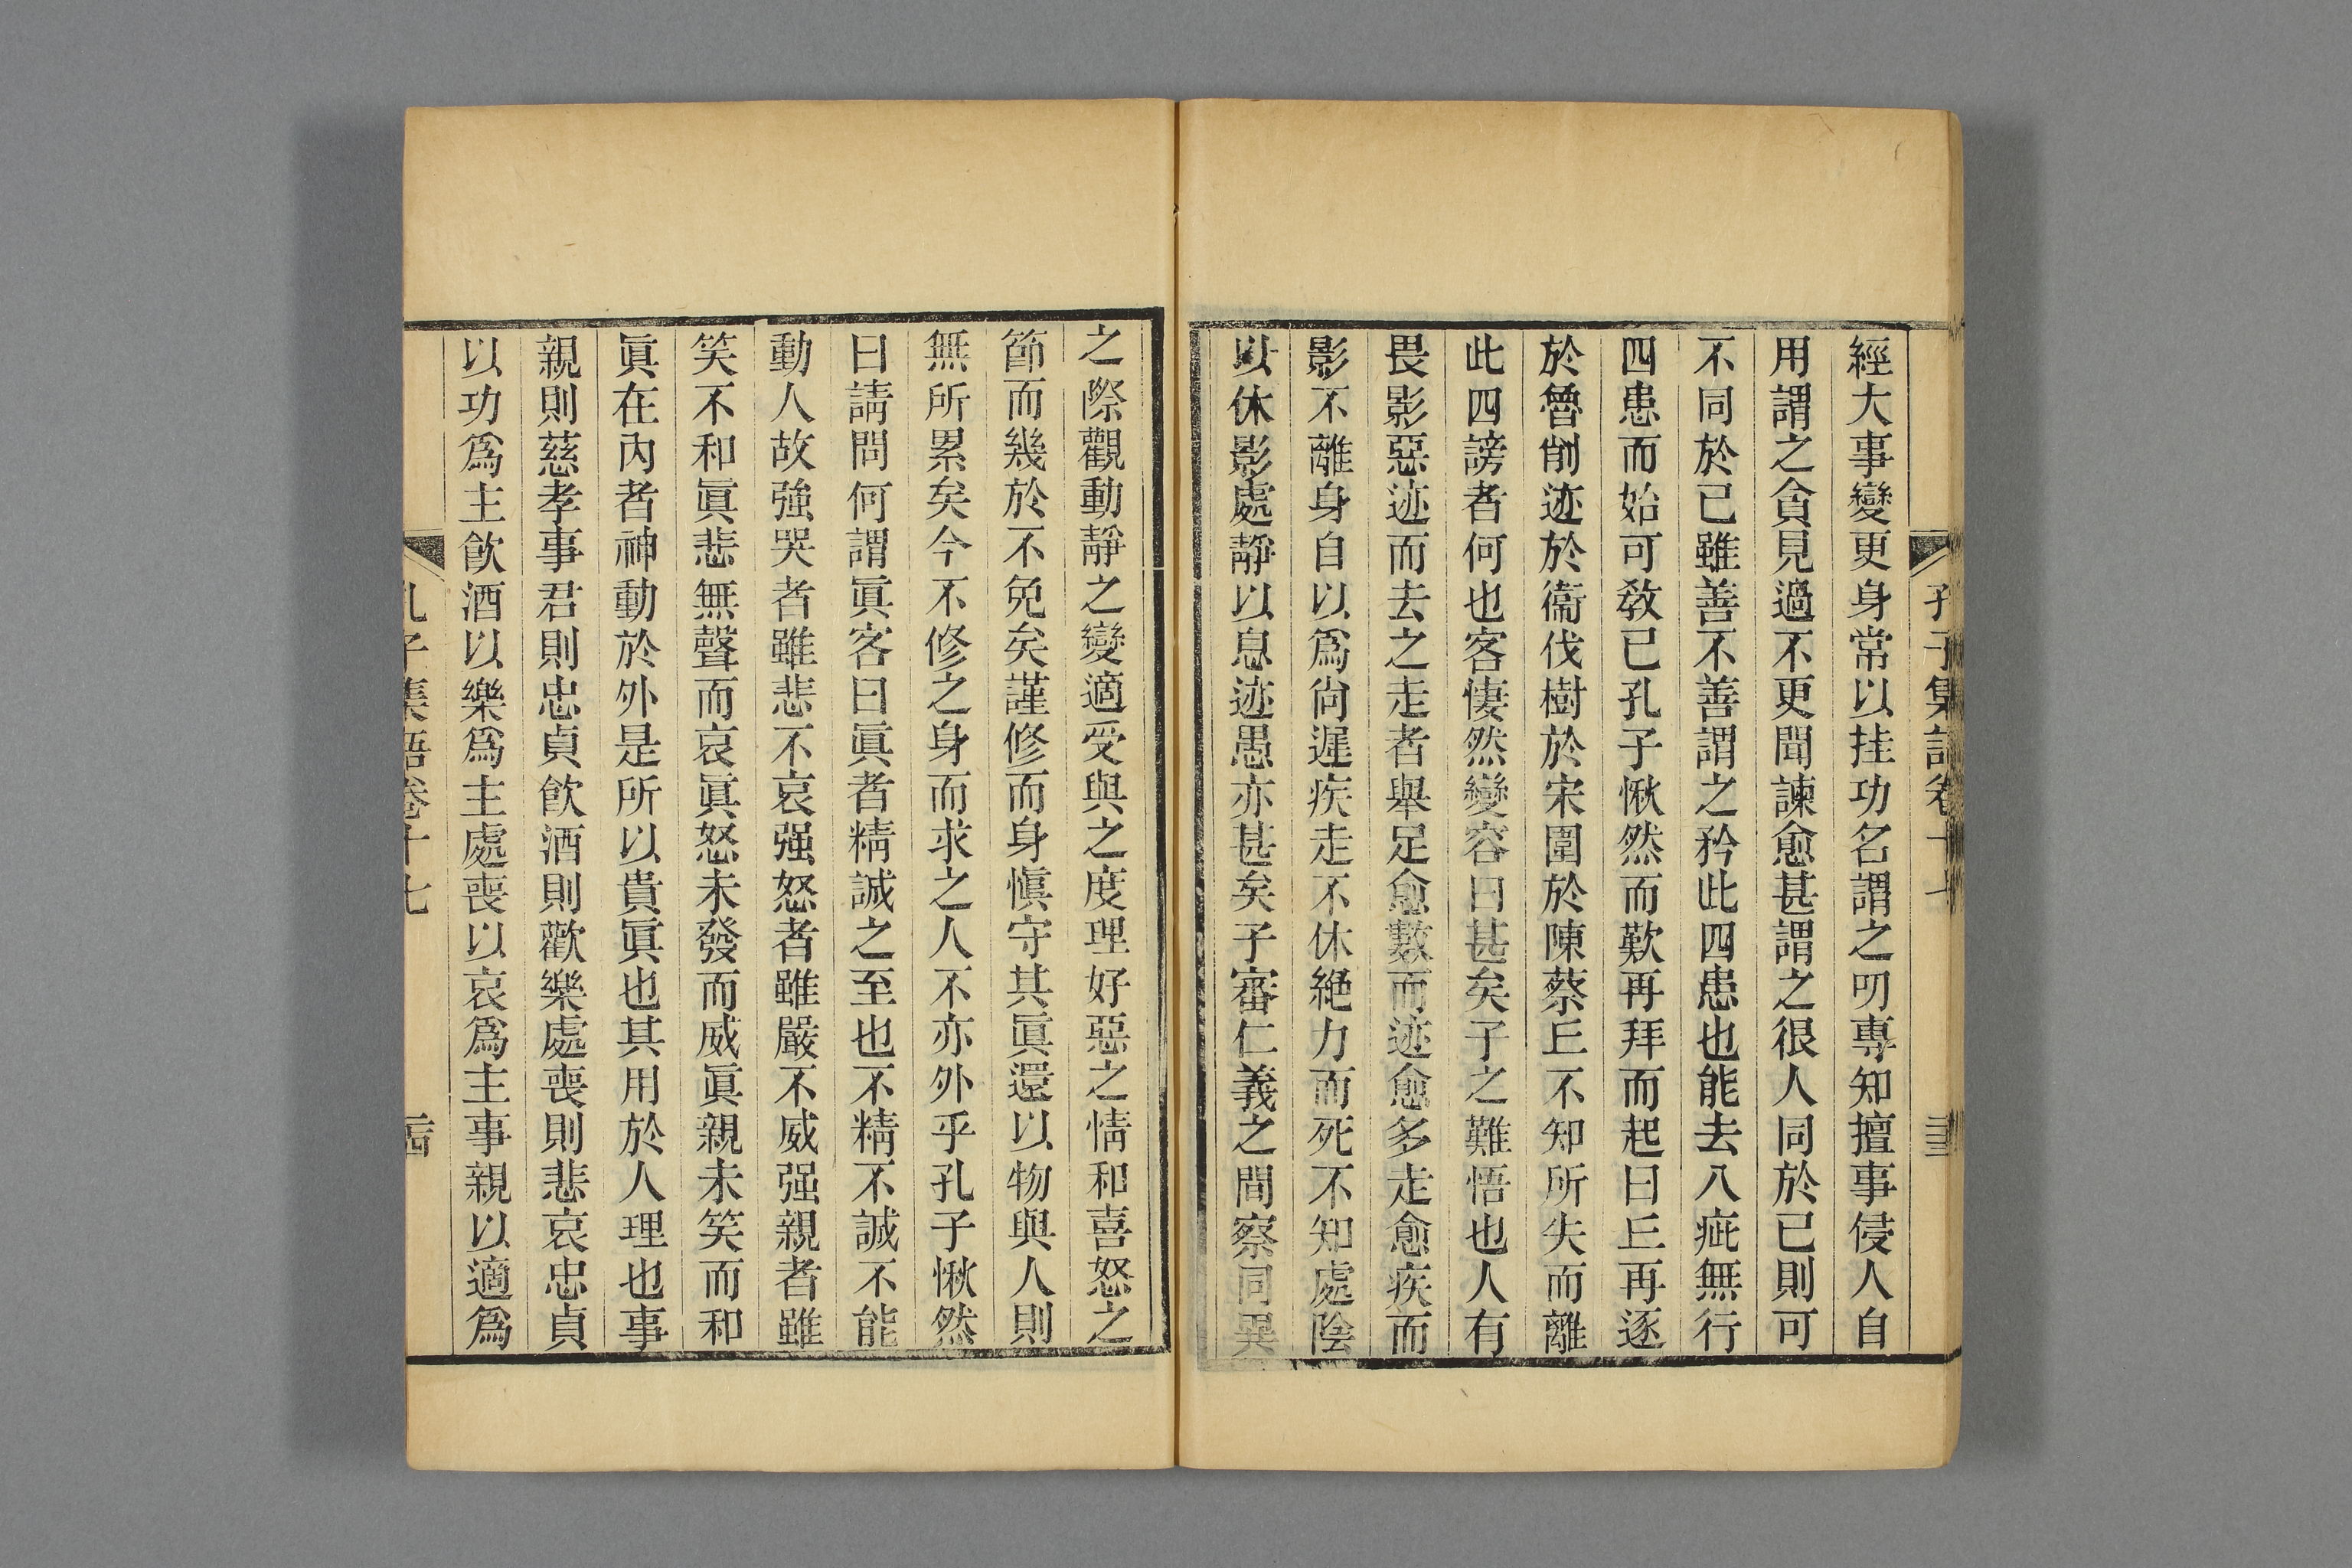 經大事變更身常以挂功名謂之叨專知擅事侵人自
用謂之貪見過不更聞諫愈甚謂之很人同於已則可
不同於已雖善不善謂之矜此四患也能去八疵無行
四患而始可敎已孔子愀然而歎再拜而起曰丘再逐
於魯削迹於衞伐樹於宋圍於陳蔡丘不知所失而離
此四謗者何也客悽然變容曰甚矣子之難悟也人有
畏影惡迹而去之走者舉足愈數而迹愈多走愈疾而
影不離身自以爲尙遲疾走不休絶力而死不知處陰
以休影處靜以息迹愚亦甚矣子審仁義之間察同異
之際觀動靜之變適受與之度理好惡之情和喜怒之
節而幾於不免矣謹修而身愼守其眞還以物與人則
無所累矣今不修之身而求之人不亦外乎孔子愀然
曰請問何謂眞客曰眞者精誠之至也不精不誠不能
動人故強哭者雖悲不哀强怒者雖嚴不威强親者雖
笑不和眞悲無聲而哀眞怒未發而威眞親未笑而和
眞在內者神動於外是所以貴眞也其用於人理也事
親則慈孝事君則忠貞飮酒則歡樂處喪則悲哀忠貞
以功爲主飮酒以樂爲主處喪以哀爲主事親以適爲
孔子集語卷十七